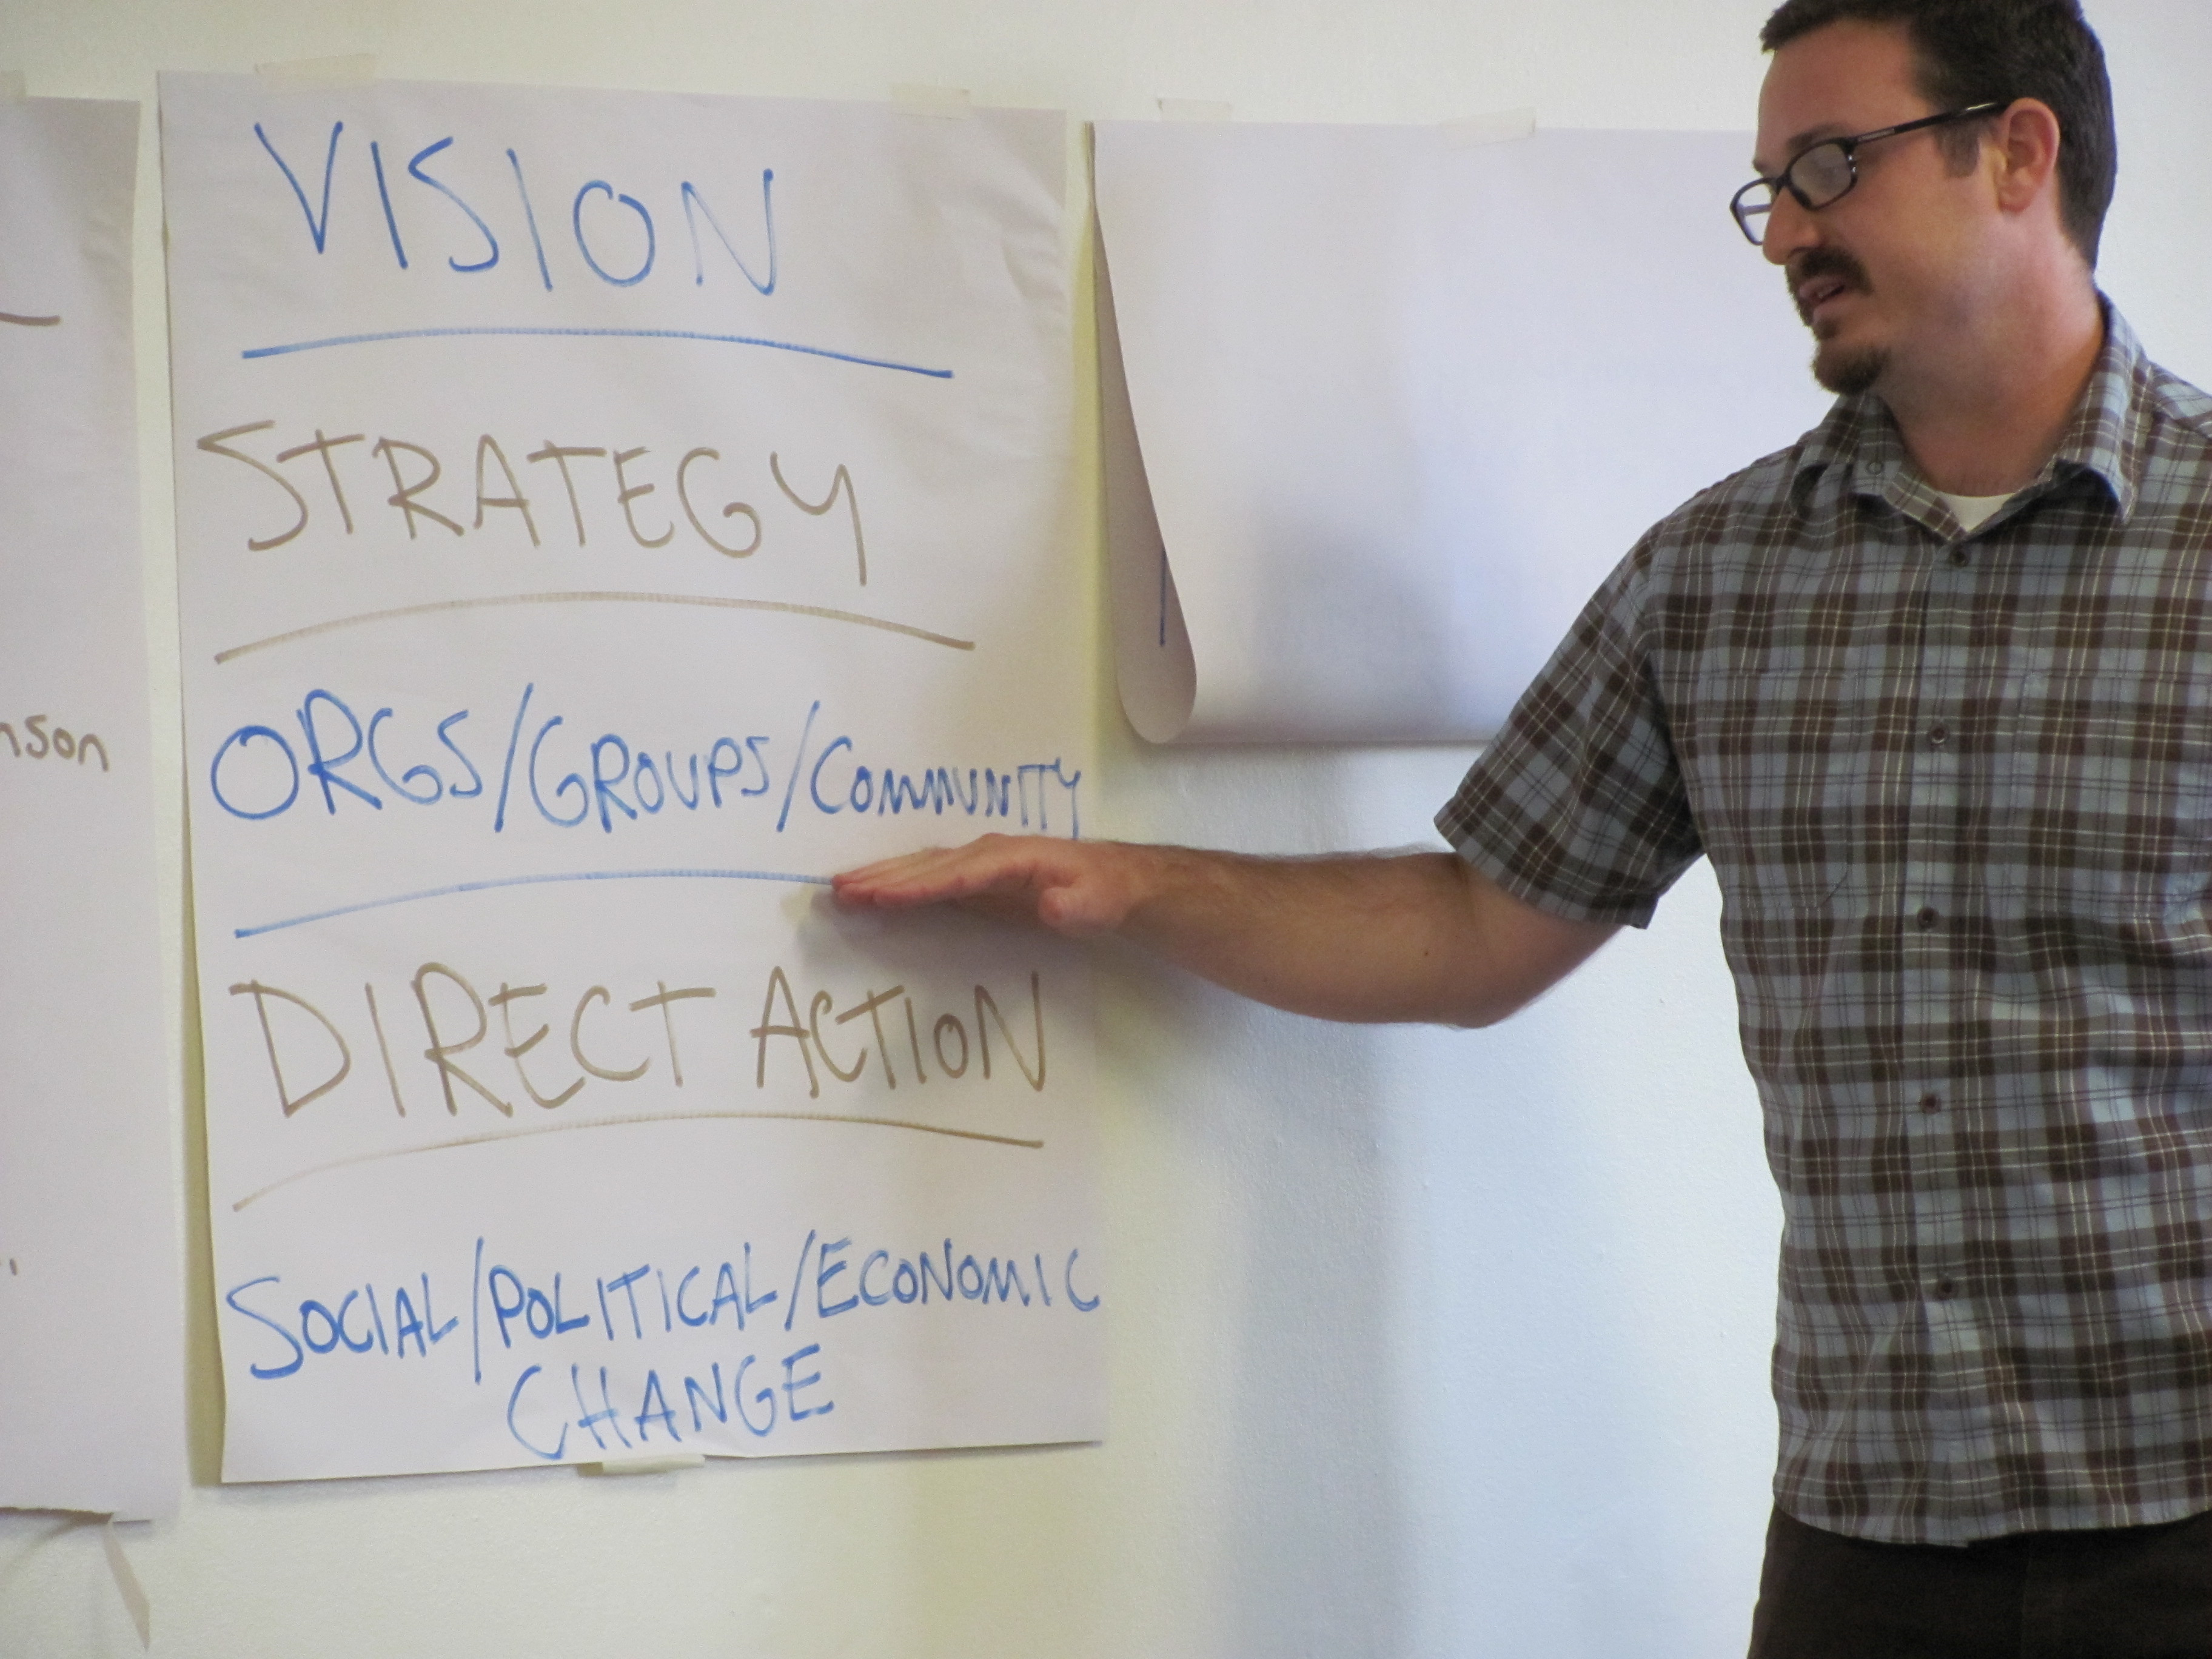 VISION
STRATEGY
ORGS/GROUPS/COMMUNITY
DIRECT ACTION
SOCIAL/POLITICAL/ECONOMIC
CHANGE
nson